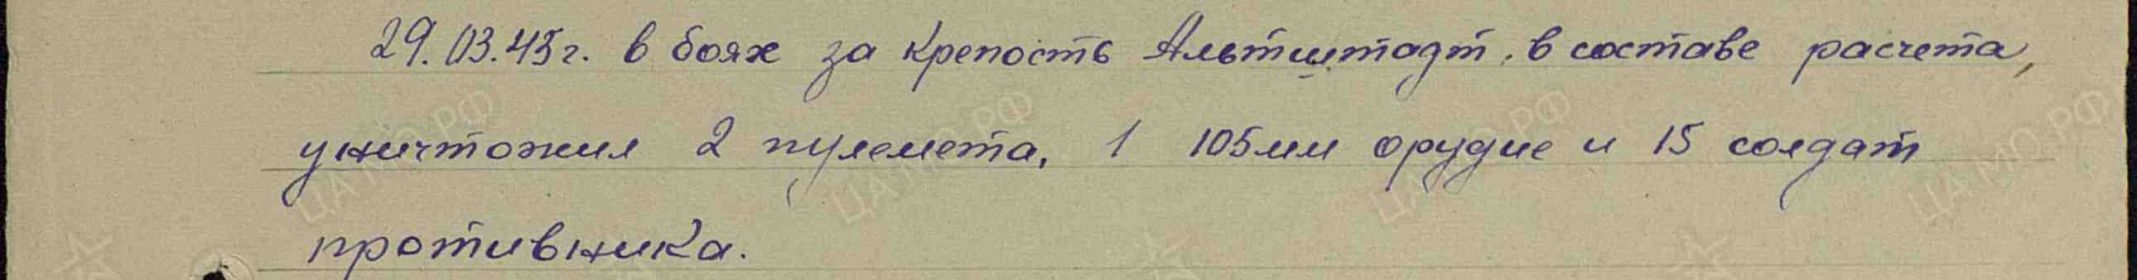 29.03.45г. в боях за крепость Альтштадт, в составе расчета,
уничтожил 2 пулемета, 1 105мм орудие и 15 солдат
противника.
ЦА МО РФ
ЦА МО РФ
ЦА МО РФ
ЦА МО РФ